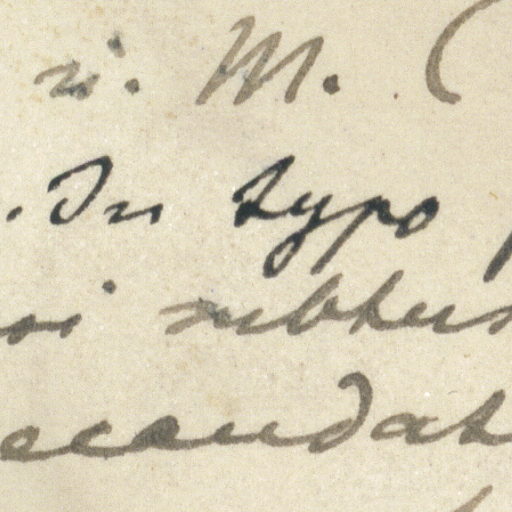 n. M. (
. In typo
oi subtus
secundat